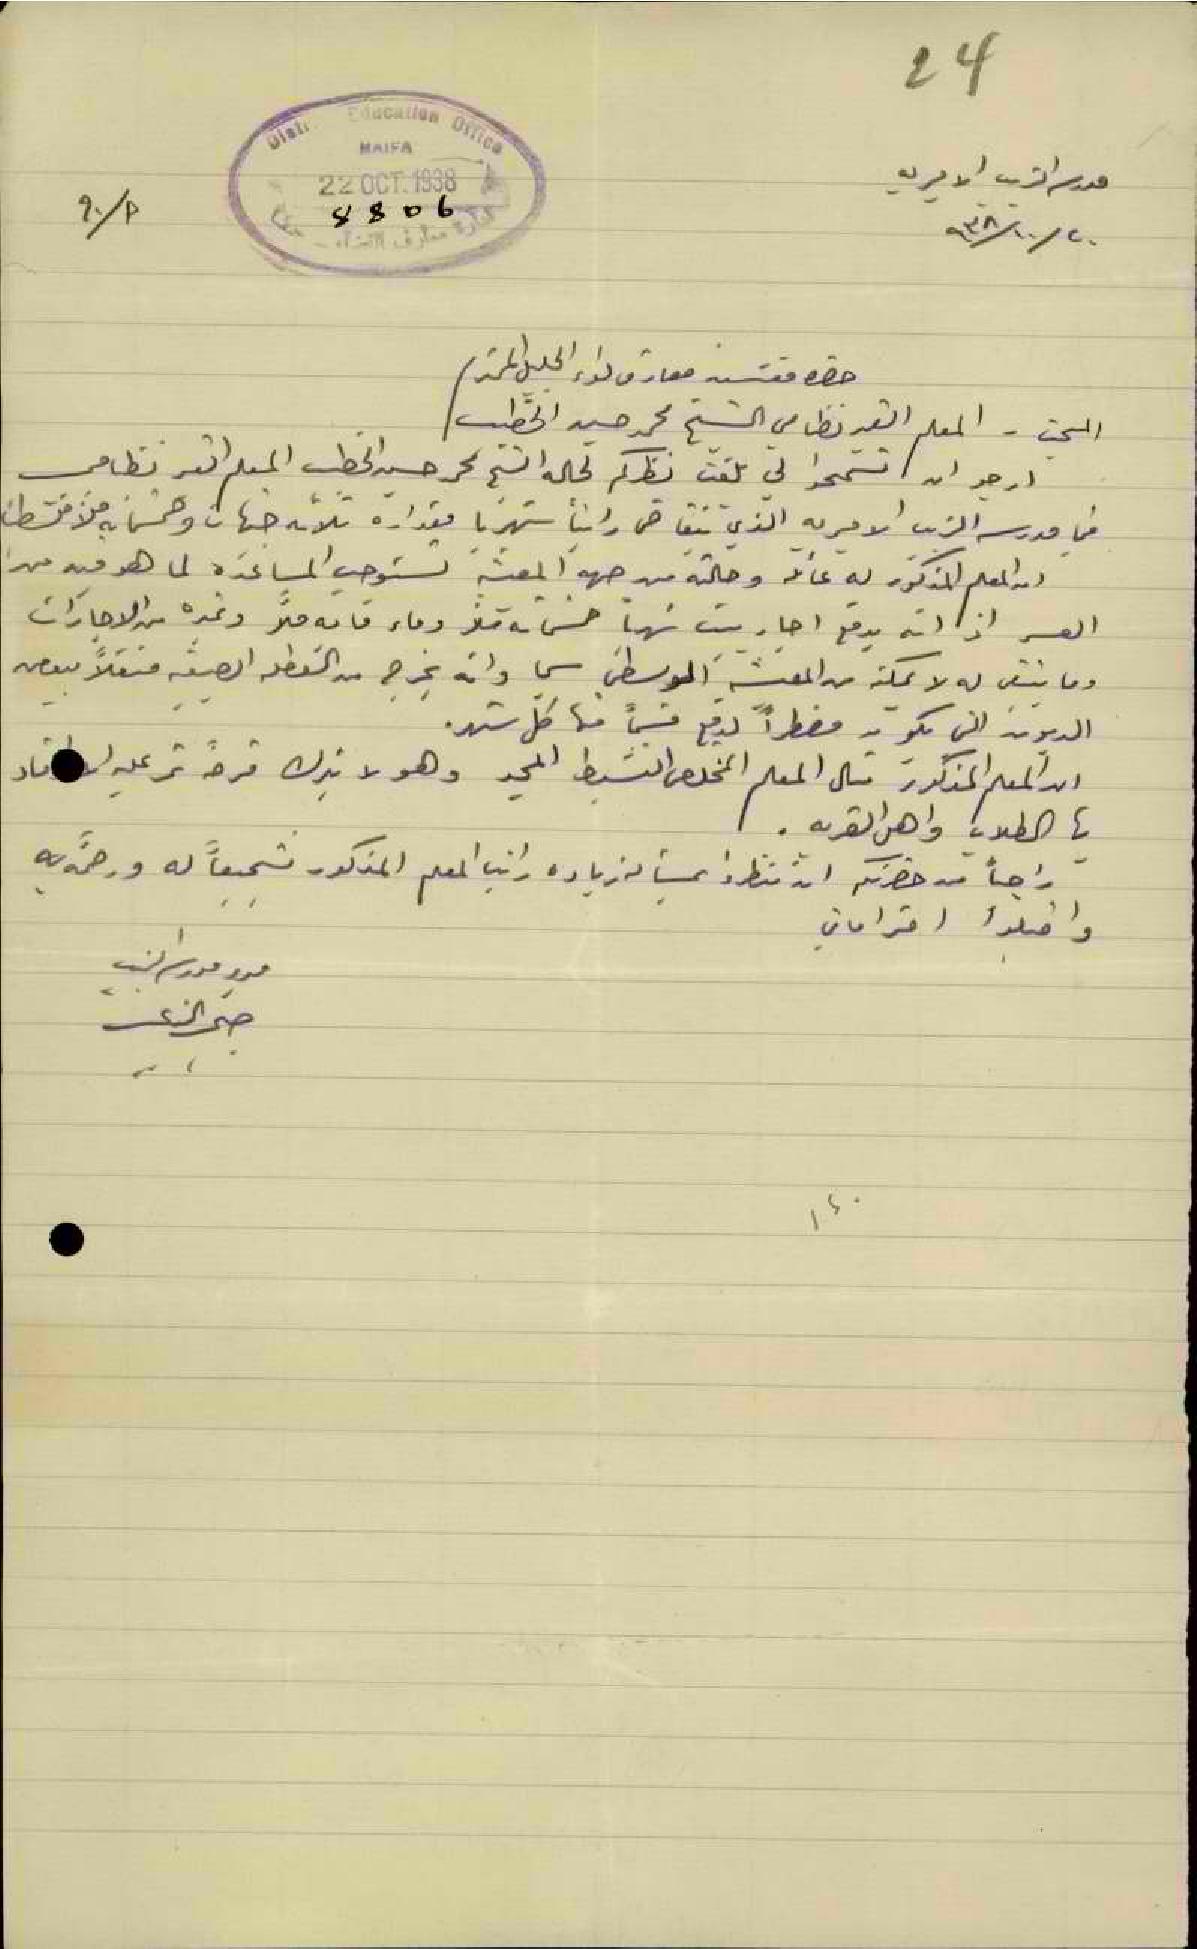 24
Distr. Education Office
HAIFA
22 OCT. 1938
8806
ادارة معارف اللواء - حيفا
مدرسة الزيب الاميرية
٢٠/١٠/٩٣٨
٩٠/م
حضرة مفتش معارف لواء الجليل المحترم
المبحث - المعلم الغير نظامي الشيخ محمد حسين الخطيب
ارجو ان تسمحوا لي بلفت نظركم لحالة الشيخ محمد حسين الخطيب المعلم الغير نظامي
في مدرسة الزيب الاميرية الذي يتقاضى راتباً شهرياً مقداره ثلاثة جنيهات وخمسماية ملاً فلسطينياً
ان المعلم المذكور له عائلة وحالته من جهة المعيشة تستوجب المساعدة لما هو فيه من
العسر اذ انه يدفع اجار بيت شهرياً خمسماية ملاً وماء ماية ملاً وغيره من الاجارات
وما يتبقى له لا يمكنه من المعيشة الوسطى سيما وانه يخرج من العطلة الصيفية مثقلاً ببعض
الديون التي يكون مضطراً لدفع قسماً منها كل شهر.
ان المعلم المذكور مثال المعلم المخلص النشيط المجد وهو لا يترك فرصة تمر عليه
بها الطلاب واهل القرية .
راجياً من حضرتكم ان تنظروا بمسألة زيادة راتب المعلم المذكور تشجيعاً له ورحمة به
واقبلوا احتراماتي
مدير مدرسة الزيب
١٤٠